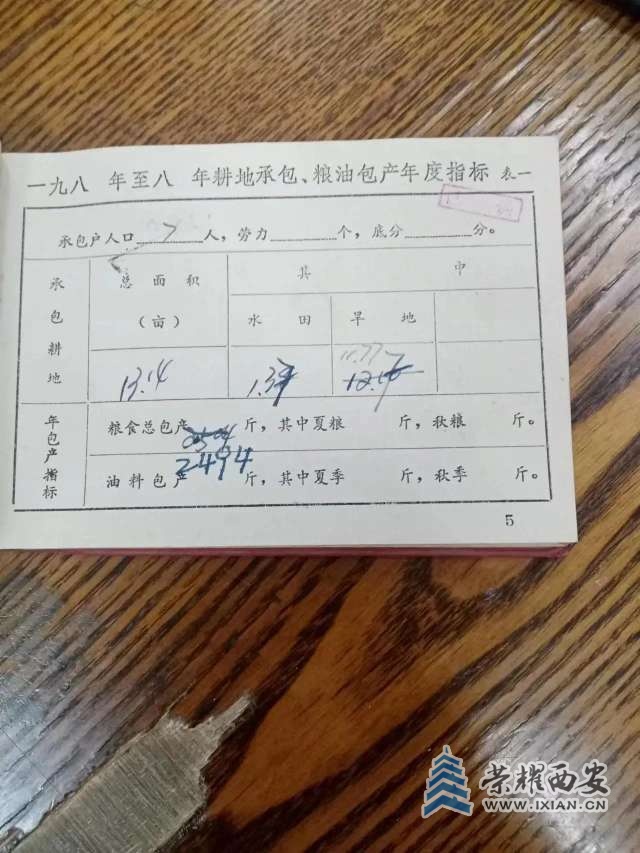 一九八 年至八 年耕地承包、粮油包产年度指标 表一
承包户人口 7 人，劳力 个，底分 分。
承包耕地
总面积（亩）
其中
水田 旱地
13.14 1.37 11.77
年包产指标
粮食总包产 斤，其中夏粮 斤，秋粮 斤。
2494
油料包产 斤，其中夏季 斤，秋季 斤。
5
荣耀西安
WWW.IXIAN.CN